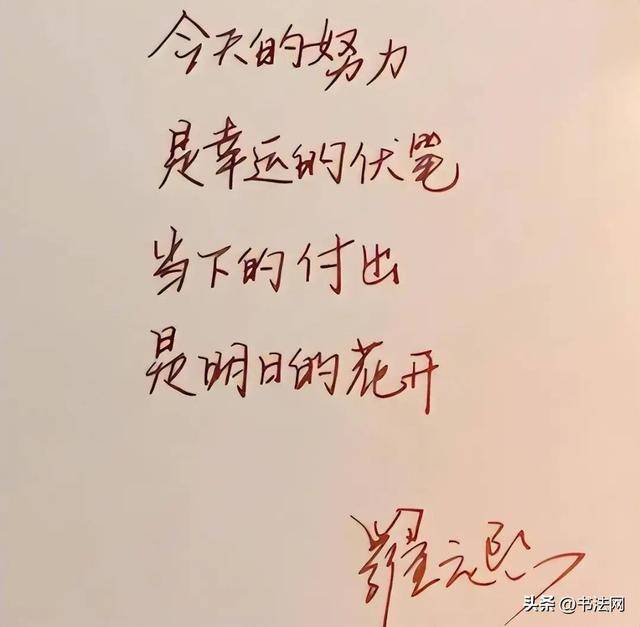 今天的努力
是幸运的伏笔
当下的付出
是明日的花开
罗云熙
头条 @书法网